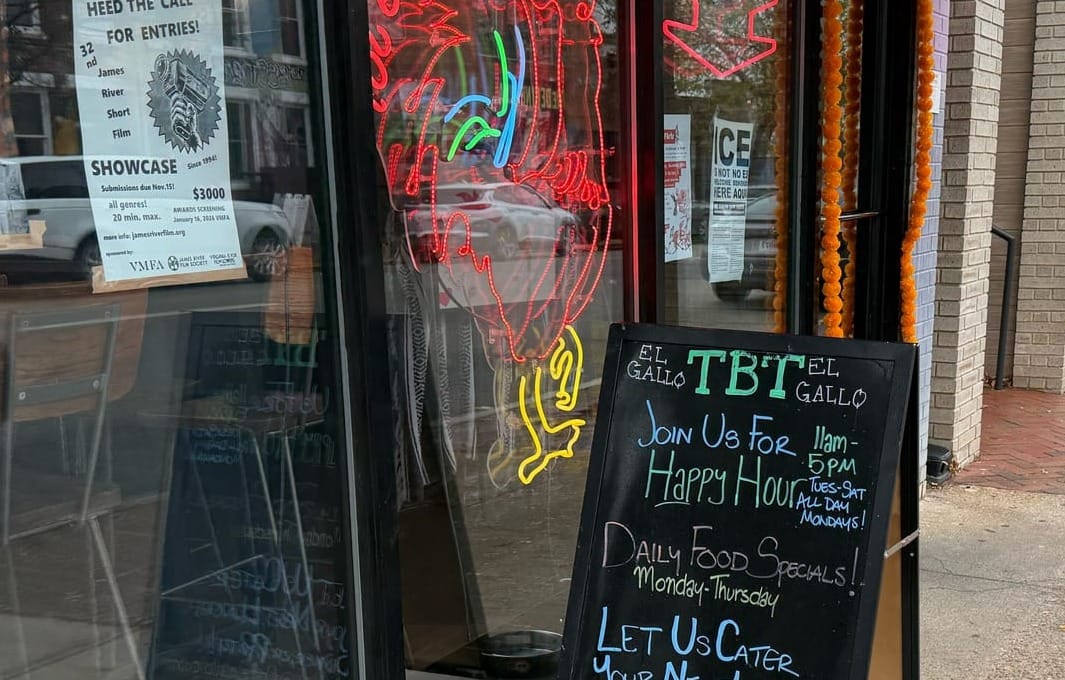 HEED THE CALL
FOR ENTRIES!
32
nd
James
River
Short
Film
Since 1994!
SHOWCASE
Submissions due Nov.15!
all genres!
20 min. max.
$3000
AWARDS SCREENING
January 16, 2026 VMFA
more info: jamesriverfilm.org
sponsored by:
VMFA
JAMES RIVER
FILM SOCIETY
ICE
HERE
EL
GALLO
TBT
EL
GALLO
JOIN US FOR
HAPPY HOUR
11am-
5PM
TUES-SAT
ALL DAY
MONDAYS!
DAILY FOOD SPECIALS!
Monday-Thursday
LET US CATER
YOUR